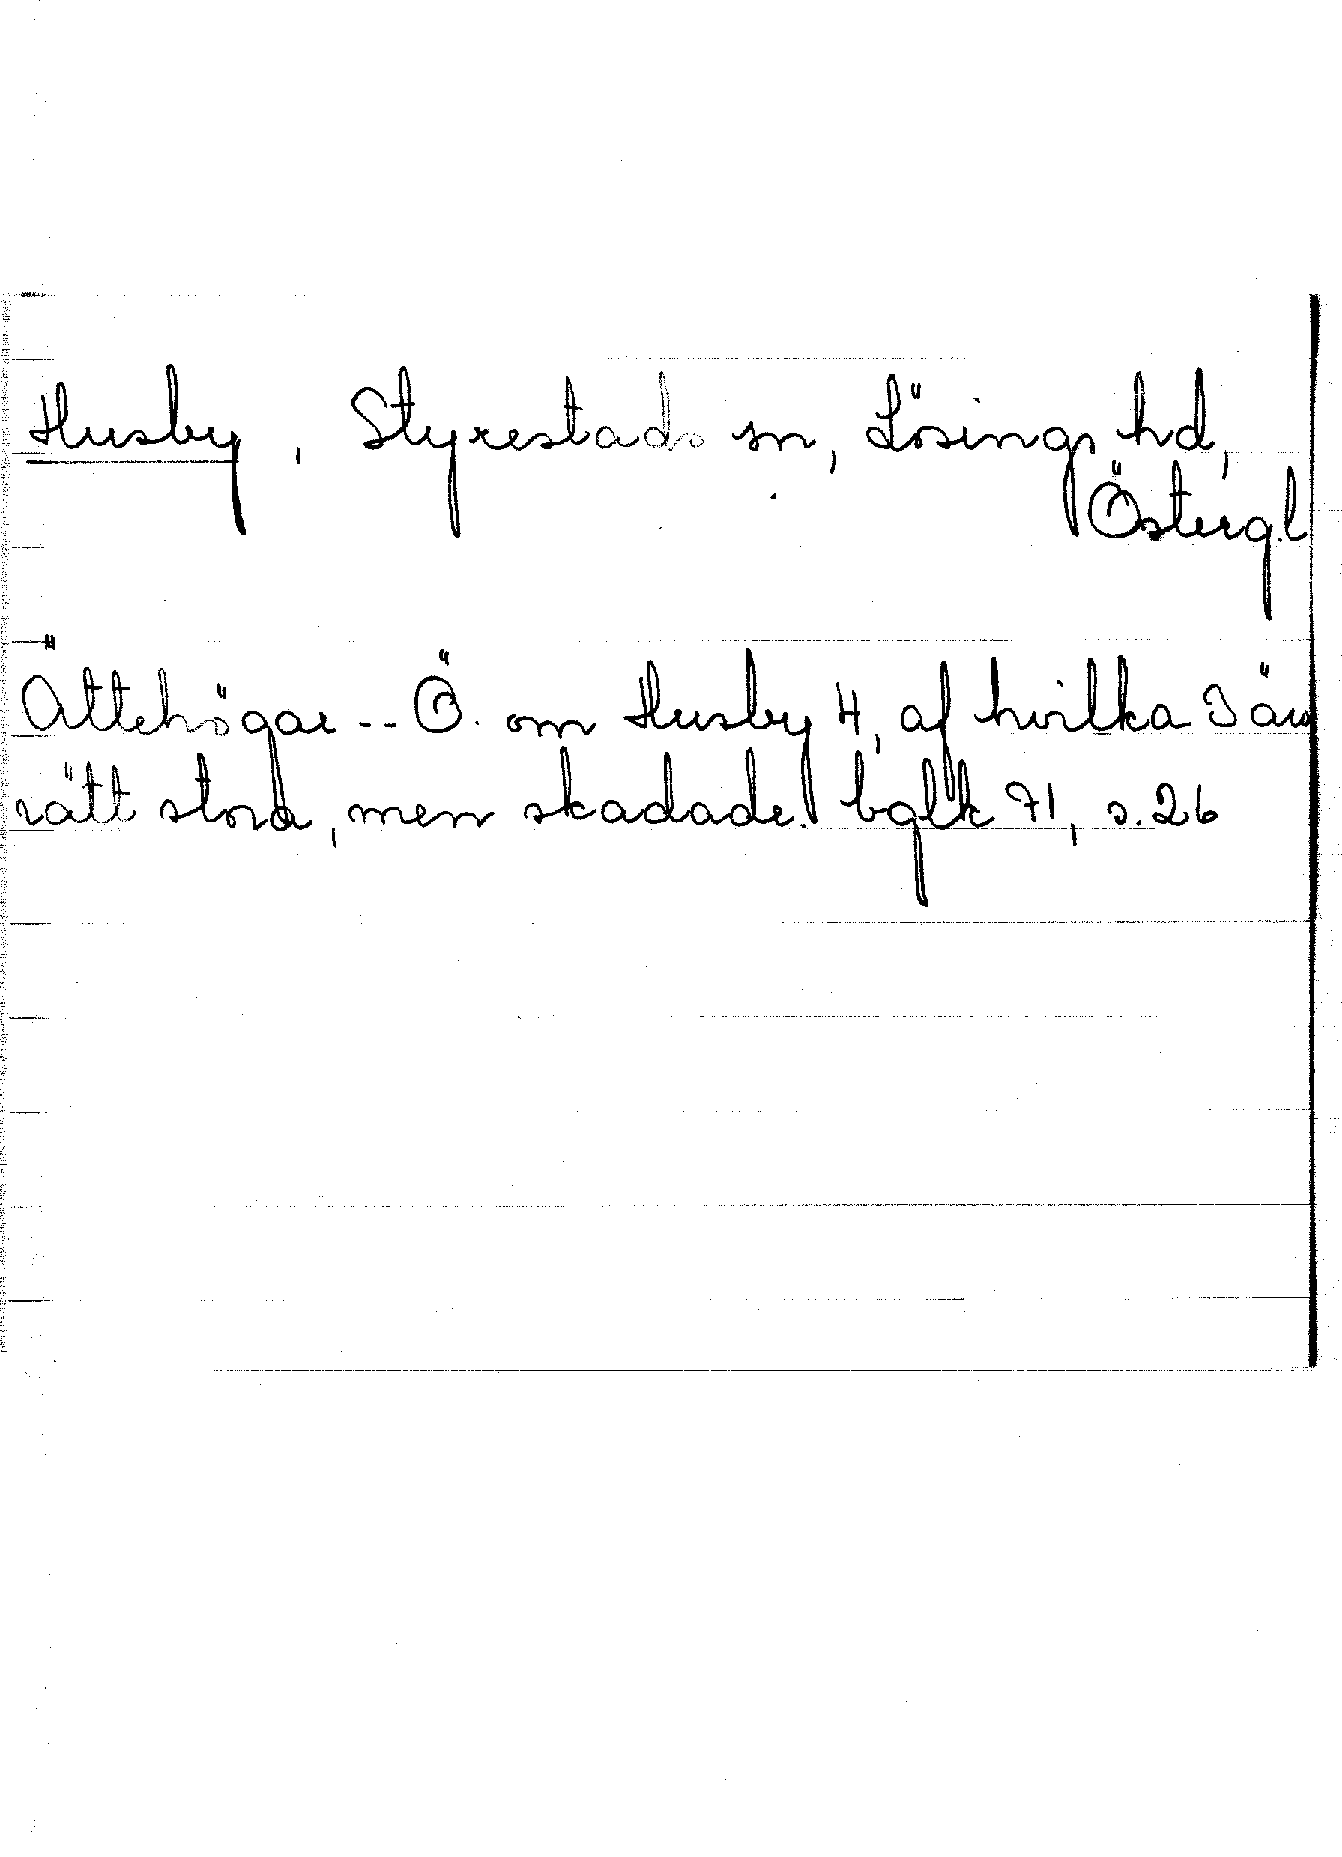 Husby, Styrestads sn, Lösings hd,
Östergl
Ättehögar -- Ö. om Husby 4, af hvilka 3 äro
rätt stora, men skadade. bglk 71, s. 26